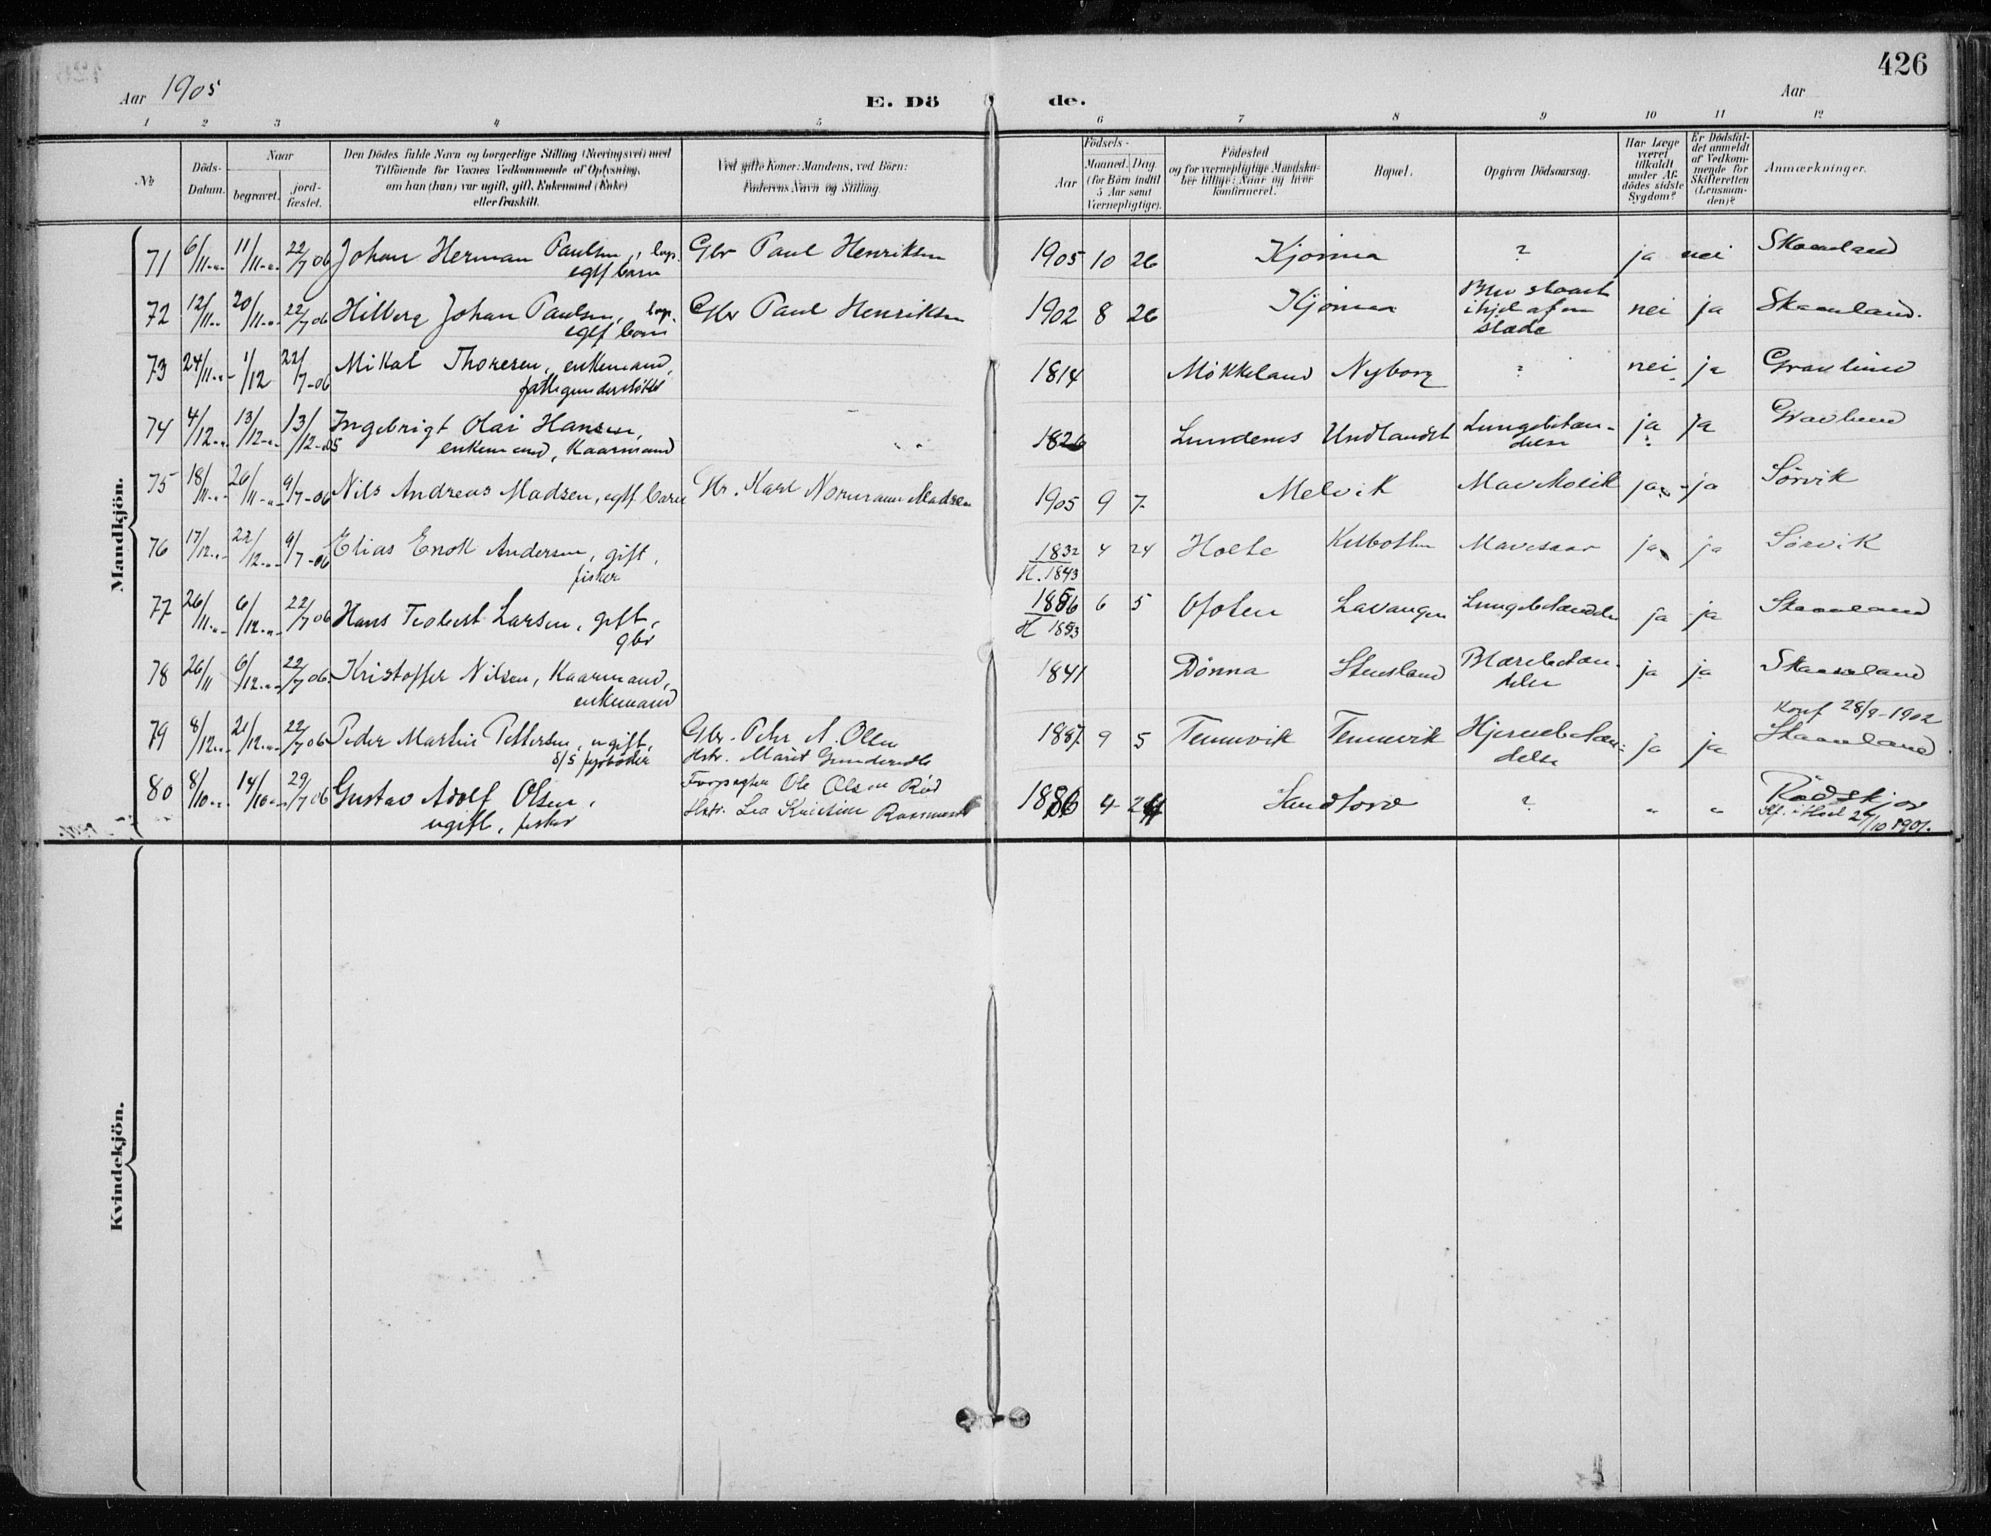 426
Aar 1905
E. Dö de.
Aar
1 2 3 4 5 6 7 8 9 10 11 12
№
Döds-Datum.
Naar
begravet.
jord-fæstet.
Den Dödes fulde Navn og borgerlige Stilling (Næringsvei) med
Tilföiende for Voxnes Vedkommende af Oplysning,
om han (hun) var ugift, gift, Enkemand (Enke)
eller fraskilt.
Ved gifte Koner: Mandens, ved Börn:
Faderens Navn og Stilling.
Födsels-
Aar
Maaned.
Dag.
(for Börn indtil
5 Aar samt
Værnepligtige).
Födested
og for værnepligtige Mandska-
ber tillige: Naar og hvor
konfirmeret.
Bopæl.
Opgiven Dödsaarsag.
Har Læge
været
tilkaldt
under Af-
dödes sidste
Sygdom?
Er Dödsfal-
det anmeldt
af Vedkom-
mende for
Skifteretten
(Lensman-
den)?
Anmærkninger.
Mandkjön.
71 6/11 11/11 22/7 06 Johan Herman Paulsen, Gbr Paul Henriksen 1905 10 26 Kjönna ? ja nei Skaanland
egtf barn
72 12/11 20/11 22/7 06 Hilberg Johan Paulsen, Gbr Paul Henriksen 1902 8 26 Kjönna Blev slaaet nei ja Skaanland.
egtf barn ihjel af en
slæde
73 24/11 1/12 22/7-06 Mikal Thoresen, enkemand, 1814 Mökkeland Nyborg ? nei ja Gravlund
fattigunderstöttet
74 4/12 13/12 13/12-05 Ingebrigt Olai Hansen, 1826 Lundenes Undlandet Lungebetæn- ja ja Gravlund
enkemand, Kaarmand delse
75 18/11 26/11 9/7-06 Nils Andreas Madsen, egtf. barn Karl Normann Madsen 1905 9 7 Melvik Mavekolik ja ja Sörvik
76 17/12 22/12 9/7-06 Elias Enok Andersen, gift, 1832 4 24 Holte Kilbotten Mavesaar ja ja Sörvik
fisker H. 1843
77 26/11 6/12 22/7 06 Hans Teobert Larsen, gift, 1856 6 5 Ofoten Lavangen Lungebetændelse ja ja Skaanland
gbr
78 26/11 6/12 22/7 06. Kristoffer Nilsen, Kaarmand, 1841 Dönna Stensland Blærebetæn- ja ja Skaanland
enkemand delse
Konf 28/9-1902
79 8/12 21/12 22/7 06 Peder Martin Pettersen, ugift, Gbr. Peder A. Olsen 1887 9 5 Tennevik Tennevik Hjernebetæn- ja ja Skaanland
Hstr. Marit delse
80 8/10 14/10 29/7 06 Gustav Adolf Olsen, Ole Olsen Röd 1886 4 24 Sandtorv ? " " Rödskjær
ugift, fisker Hstr. Lea Kristine 1901.
Kvindekjön.